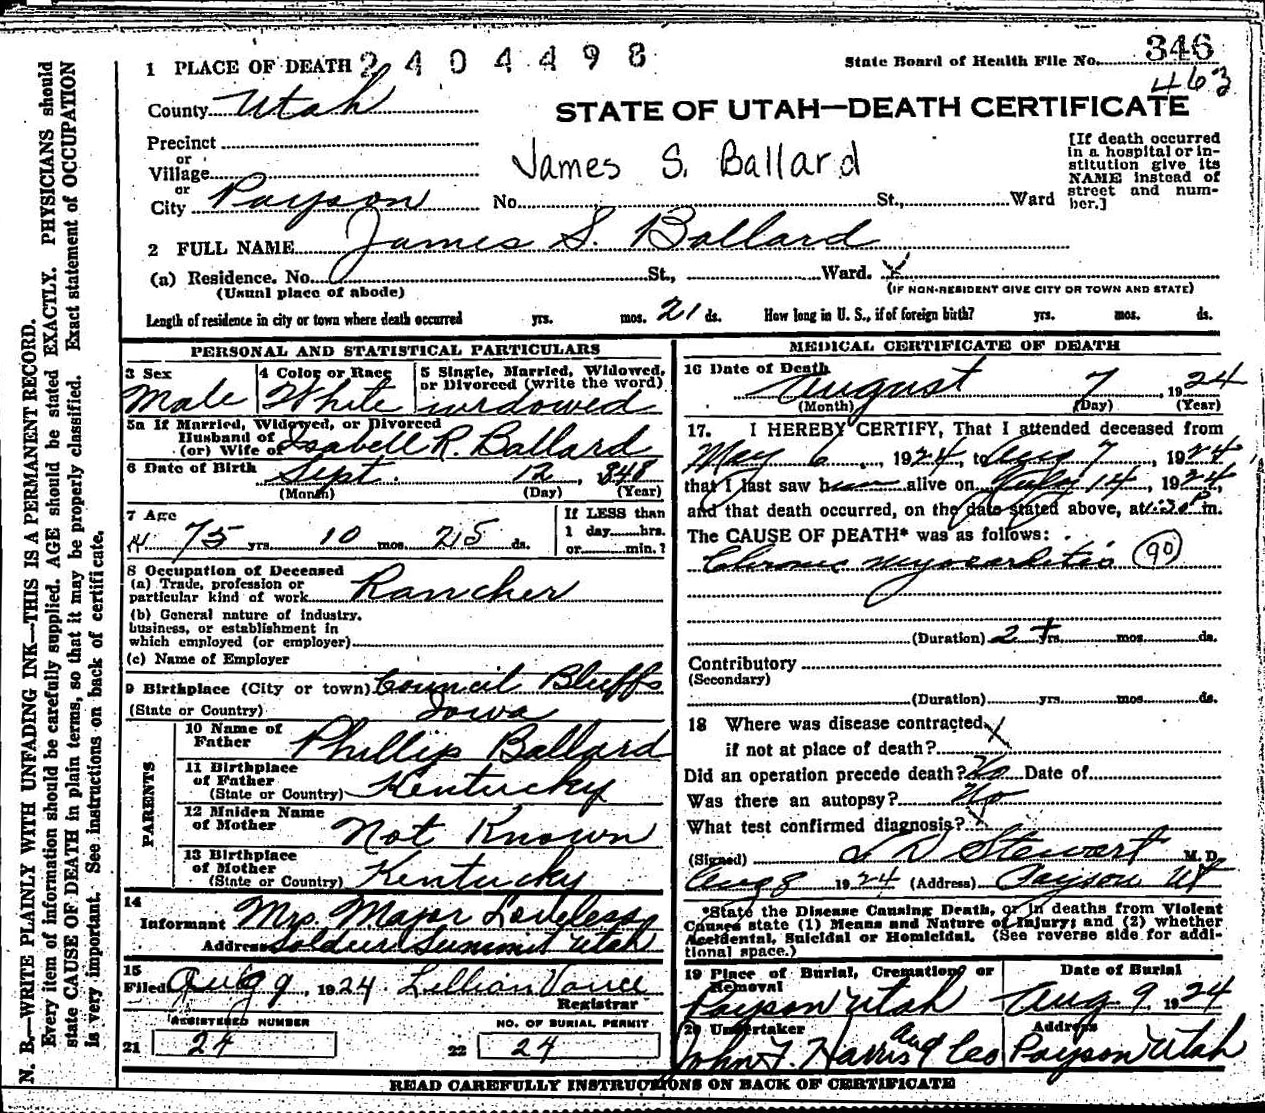 346
1 PLACE OF DEATH 2404498 State Board of Health File No.
463
County Utah
STATE OF UTAH—DEATH CERTIFICATE
Precinct
or
Village
or
City Payson No. St., Ward
James S. Ballard
[If death occurred
in a hospital or in-
stitution give its
NAME instead of
street and num-
ber.]
2 FULL NAME James S. Ballard
(a) Residence. No. St., Ward. X
(Usual place of abode) (IF NON-RESIDENT GIVE CITY OR TOWN AND STATE)
Length of residence in city or town where death occurred yrs. mos. 21 ds. How long in U. S., if of foreign birth? yrs. mos. ds.
PERSONAL AND STATISTICAL PARTICULARS
3 Sex
Male
4 Color or Race
White
5 Single, Married, Widowed,
or Divorced (write the word)
widowed
5a If Married, Widowed, or Divorced
Husband of
(or) Wife of Isabell R. Ballard
6 Date of Birth Sept. 12, 848
(Month) (Day) (Year)
7 Age
75 yrs 10 mos. 25 ds.
If LESS than
1 day hrs.
or min.?
8 Occupation of Deceased
(a) Trade, profession or
particular kind of work Rancher
(b) General nature of industry,
business, or establishment in
which employed (or employer)
(c) Name of Employer
9 Birthplace (City or town) Council Bluffs
(State or Country) Iowa
PARENTS
10 Name of
Father Phillip Ballard
11 Birthplace
of Father
(State or Country) Kentucky
12 Maiden Name
of Mother Not Known
13 Birthplace
of Mother
(State or Country) Kentucky
14
Informant Mrs. Major Loveless
Address Soldier Summit Utah
15
Filed Aug 9, 1924 Lillian Vance
Registrar
REGISTERED NUMBER
21 24
NO. OF BURIAL PERMIT
22 24
MEDICAL CERTIFICATE OF DEATH
16 Date of Death
August 7 1924
(Month) (Day) (Year)
17. I HEREBY CERTIFY, That I attended deceased from
May 6, 1924, to Aug 7, 1924,
that I last saw him alive on July 14, 1924,
and that death occurred, on the date stated above, at m.
The CAUSE OF DEATH* was as follows:
Chronic myocarditis 90
(Duration) 2+ yrs. mos. ds.
Contributory
(Secondary)
(Duration) yrs. mos. ds.
18 Where was disease contracted X
if not at place of death?
Did an operation precede death? No Date of
Was there an autopsy? No
What test confirmed diagnosis? X
(Signed) Stewart M.D.
Aug 8 1924 (Address) Payson Ut
*State the Disease Causing Death, or in deaths from Violent
Causes state (1) Means and Nature of Injury; and (2) whether
Accidental, Suicidal or Homicidal. (See reverse side for addi-
tional space.)
19 Place of Burial, Cremation, or
Removal
Payson Utah
Date of Burial
Aug 9 1924
20 Undertaker
John F. Harris and Co
Address
Payson Utah
READ CAREFULLY INSTRUCTIONS ON BACK OF CERTIFICATE
N. B.—WRITE PLAINLY WITH UNFADING INK—THIS IS A PERMANENT RECORD.
Every item of information should be carefully supplied. AGE should be stated EXACTLY. PHYSICIANS should
state CAUSE OF DEATH in plain terms, so that it may be properly classified. Exact statement of OCCUPATION
is very important. See instructions on back of certificate.